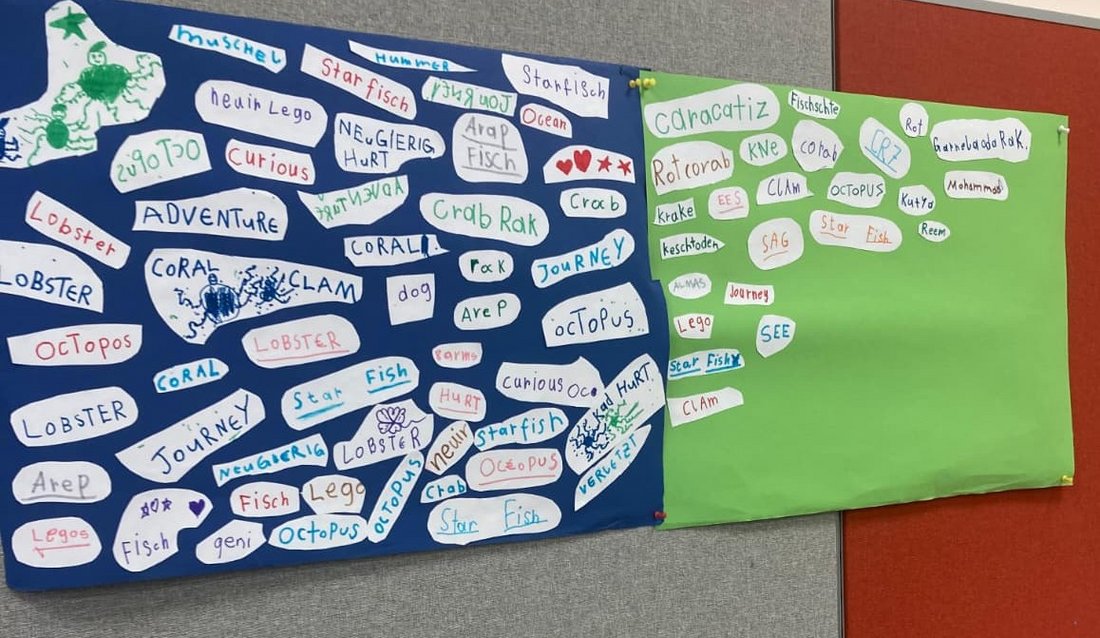 muSCHEL
HUMMER
Starfisch
Starfisch
JOURNEY
neuir Lego
Ocean
NEuGIERIG
HuRT
Arap
Fisch
OCTOPUS
Curious
ADVENTURE
Lobster
ADVENTuRE
Crab Rak
Crab
CORAL
LOBSTER
CORAL
CLAM
Rak
JOURNEY
dog
AreP
OCTOPUS
OCTOPOS
LOBSTER
CORAL
Star Fish
HURT
curious Oc
Kad HuRT
LOBSTER
JOURNEY
LOBSTER
neuir
starfish
NEUGIERIG
OCEOPUS
VERLETZT
AreP
Fisch
Lego
OCTOPUS
Crab
Legos
Fisch
geni
OCTOPUS
Star Fish
caracatiz
Fischschte
Rot
GarneladadoRak.
Rotcorab
KNe
corab
CRZ
krake
EES
CLAm
OCTOPUS
Kutya
Mohammad
Keschtoden
SAG
Star Fish
Reem
ALMAS
Journey
Lego
SEE
Star Fish
CLAm